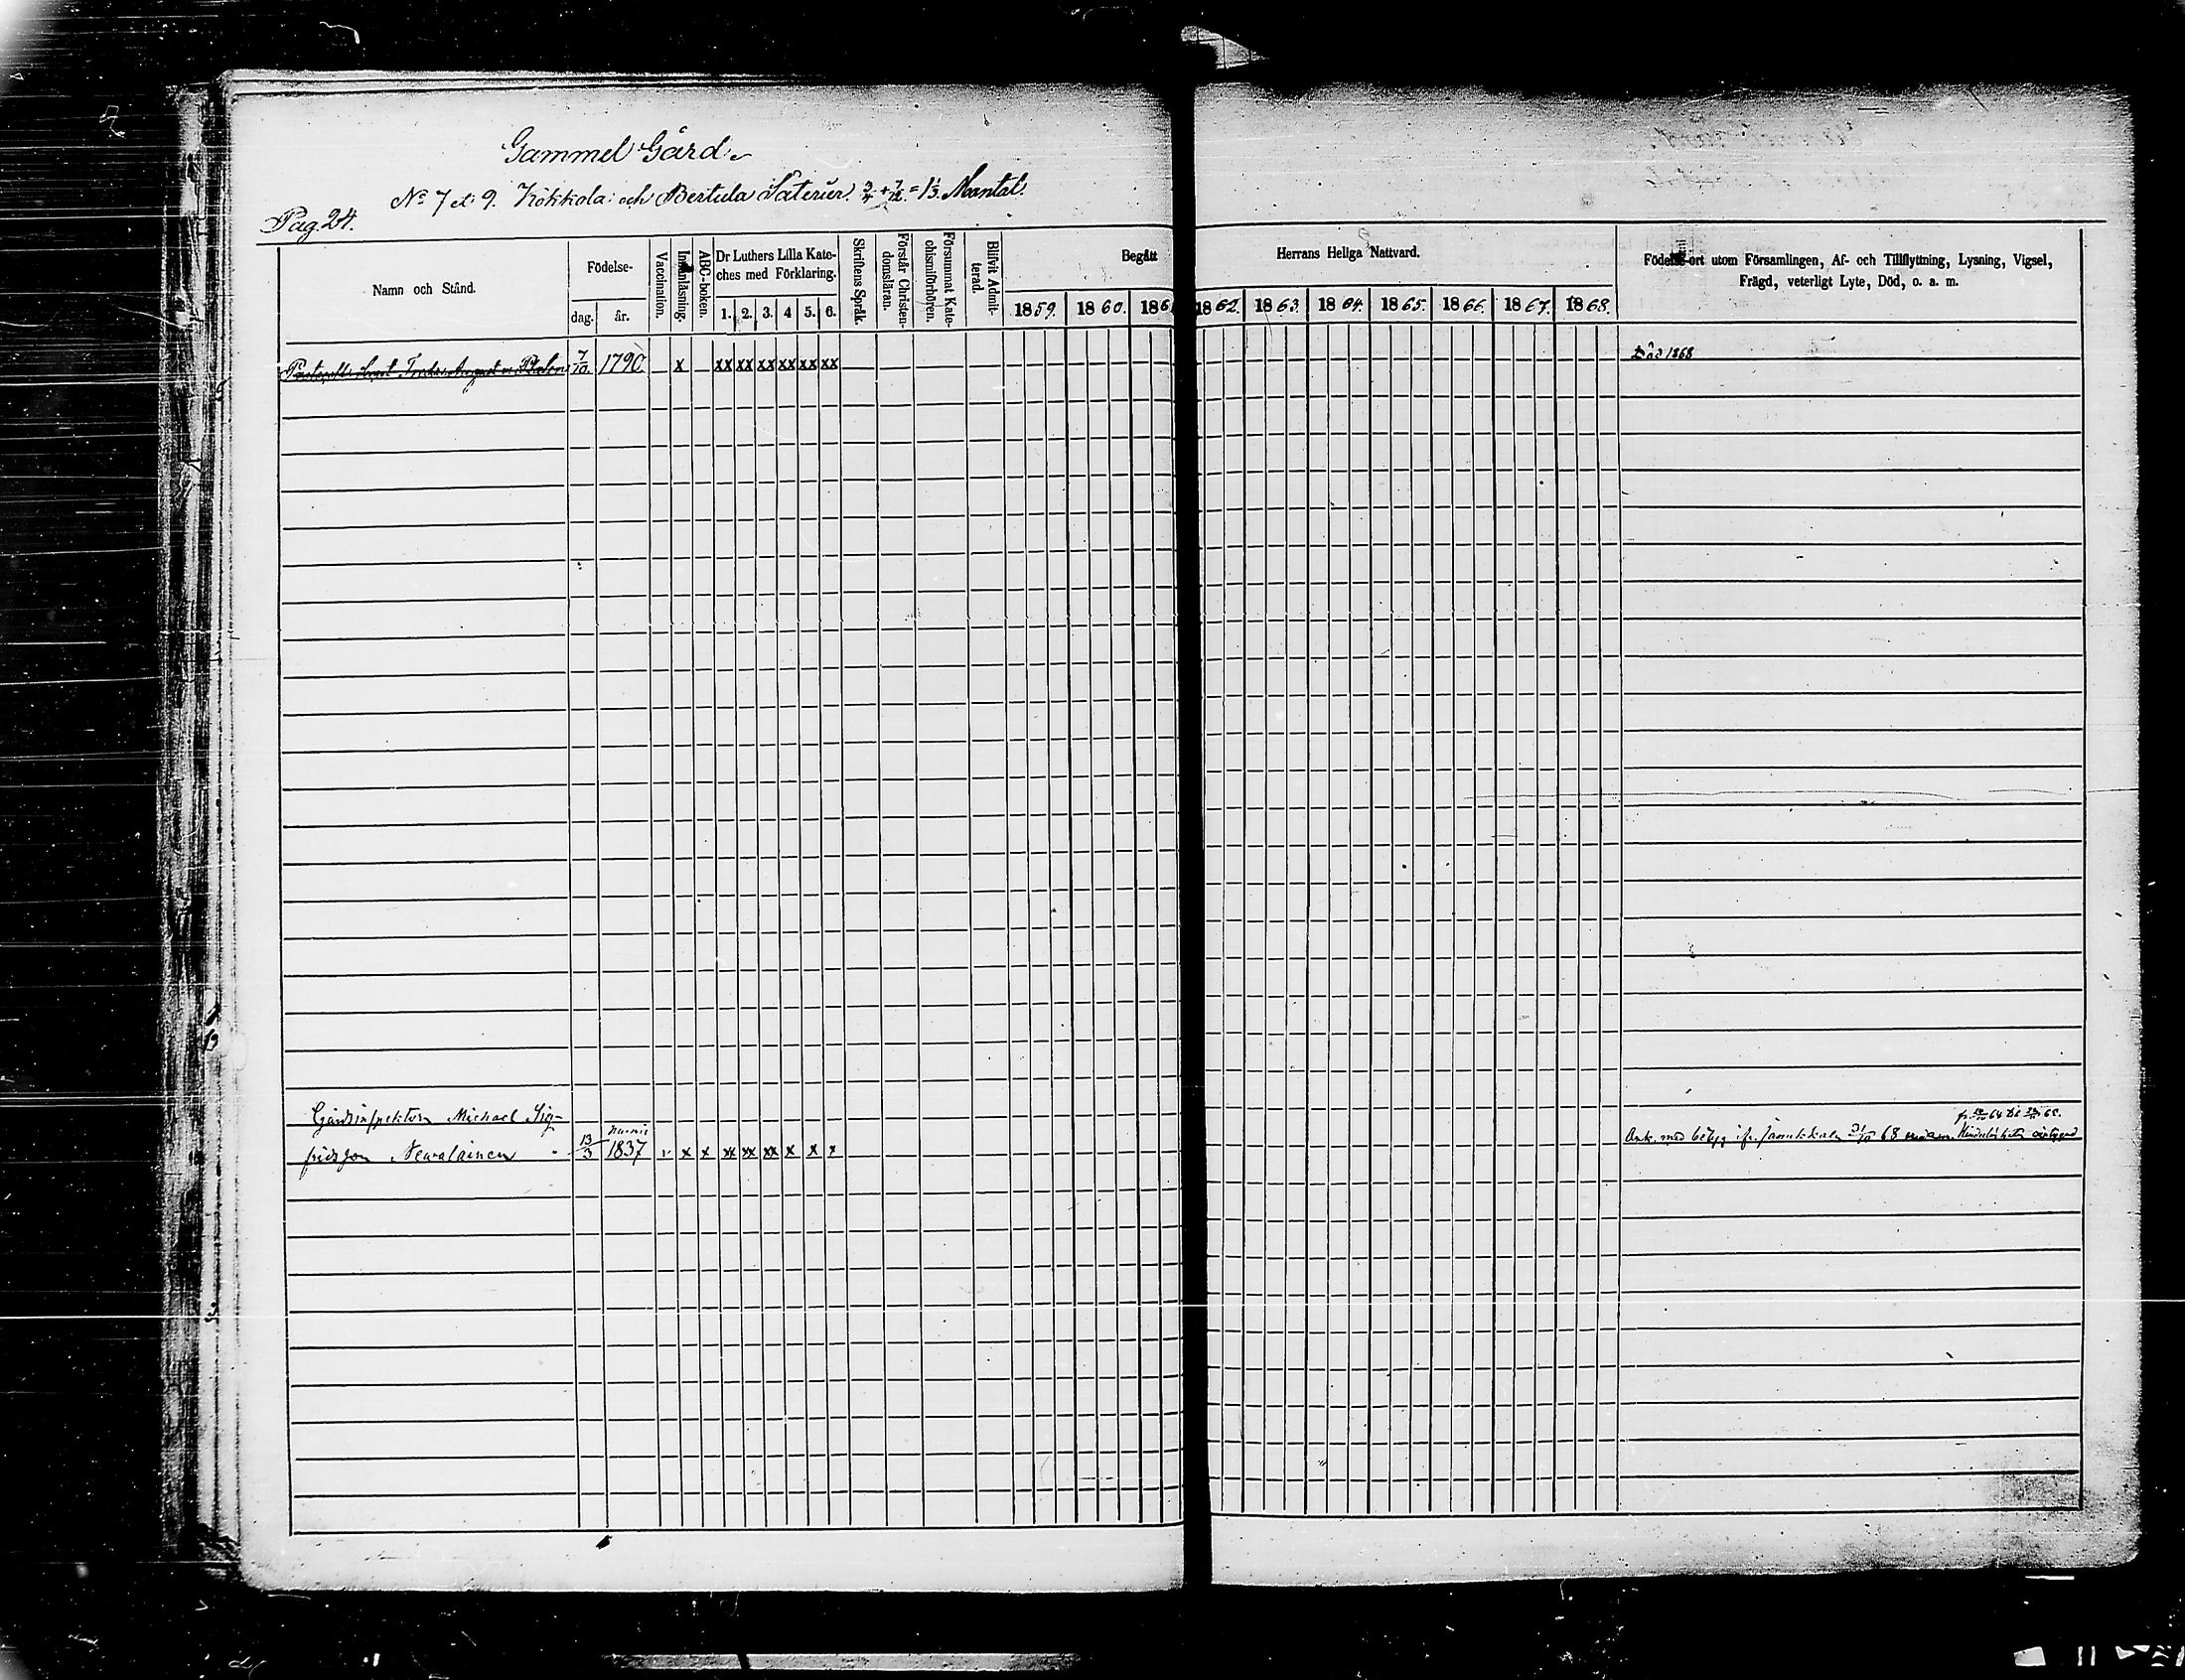 Gammel Gård.
No 7 et 9. Kokkola och Bertula Säterier. 3/4 + 7/12 = 1 1/3 Mantal.
Pag. 24.
Namn och Stånd.
Födelse-
dag. år.
Vaccination.
Innanläsning.
ABC-boken.
Dr Luthers Lilla Kate-
ches med Förklaring.
1. 2. 3. 4 5. 6.
Skriftens Språk.
Förstår Christen-
domsläran.
Försummat Kate-
chismiförhören.
Blifvit Admit-
terad.
Begått Herrans Heliga Nattvard.
1859. 1860. 186 1862. 1863. 1864. 1865. 1866. 1867. 1868.
Födelse-ort utom Församlingen, Af- och Tillflyttning, Lysning, Vigsel,
Frägd, veterligt Lyte, Död, o. a. m.
August v. 7/10 1790 x xx xx xx xx xx xx Död 1868
Gårdsinspektorn Michael Sig-
fridsson Newalainen 13/3 1837 v x x xx xx xx x x x Ank. med betyg ifr. 68